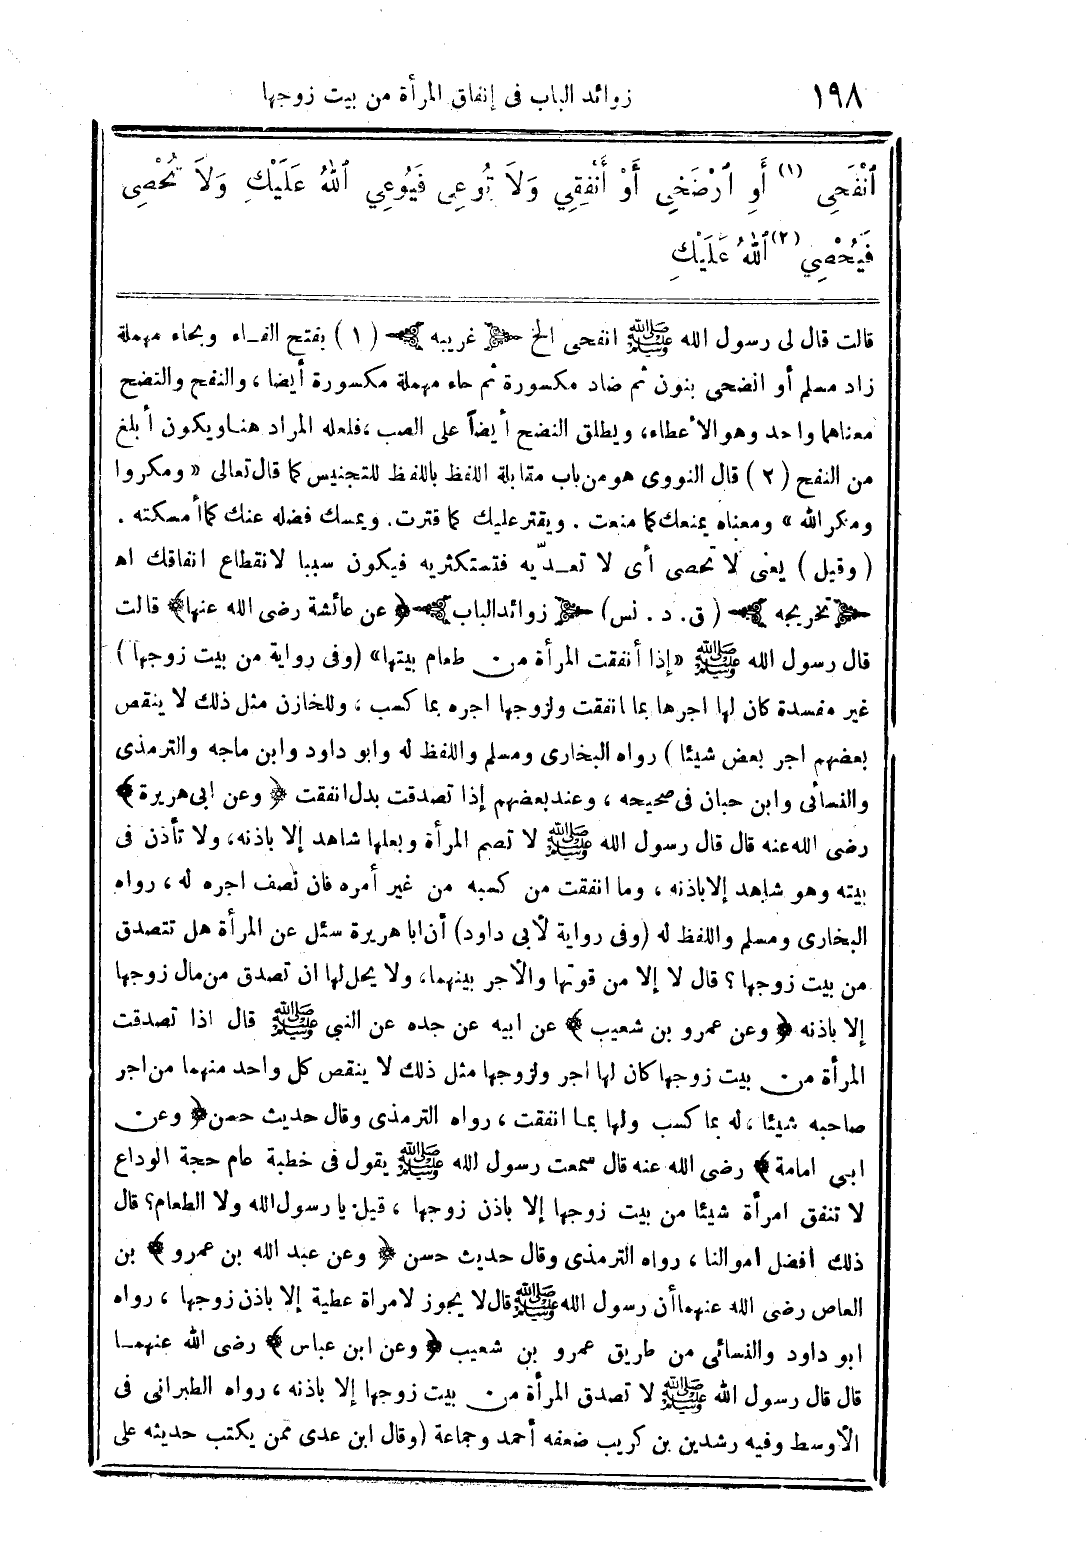 ١٩٨ زوائد الباب فى إنفاق المرأة من بيت زوجها
ٱنْفَحِى (١) أَوِ ٱرْضَخِى أَوْ أَنْفِقِي وَلَا تُوعِى فَيُوعِي ٱللهُ عَلَيْكِ وَلَا تُحْصِى
فَيُحْصِي (٢) ٱللهُ عَلَيْكِ
قالت قال لى رسول الله ﷺ انفحى الخ ﴿غريبه﴾ (١) بفتح الفـاء وبحاء مهملة
زاد مسلم أو انضحى بنون ثم ضاد مكسورة ثم حاء مهملة مكسورة أيضا، والنفح والنضح
معناهما واحد وهو الأعطاء، ويطلق النضح أيضاً على الصب، فلعله المراد هنا ويكون أبلغ
من النفح (٢) قال النووى هو من باب مقابلة اللفظ باللفظ للتجنيس كما قال تعالى «ومكروا
ومكر الله» ومعناه يمنعك كما منعت. ويقتر عليك كما قترت. ويمسك فضله عنك كما أمسكته.
(وقيل) يعنى لا تحصى أى لا تعـدّيه فتستكثريه فيكون سببا لانقطاع انفاقك اه
﴿تخريجه﴾ (ق. د. نس) ﴿زوائد الباب﴾ ﴿عن عائشة رضى الله عنها﴾ قالت
قال رسول الله ﷺ «إذا أنفقت المرأة من طعام بيتها» (وفى رواية من بيت زوجها)
غير مفسدة كان لها اجرها بما انفقت ولزوجها اجره بما كسب، وللخازن مثل ذلك لا ينقص
بعضهم اجر بعض شيئا) رواه البخارى ومسلم واللفظ له وابو داود وابن ماجه والترمذى
والنسائى وابن حبان فى صحيحه، وعند بعضهم إذا تصدقت بدل انفقت ﴿وعن ابى هريرة﴾
رضى الله عنه قال قال رسول الله ﷺ لا تصم المرأة وبعلها شاهد إلا باذنه، ولا تأذن فى
بيته وهو شاهد إلا باذنه، وما انفقت من كسبه من غير أمره فان نصف اجره له، رواه
البخارى ومسلم واللفظ له (وفى رواية لأبى داود) أن ابا هريرة سئل عن المرأة هل تتصدق
من بيت زوجها؟ قال لا إلا من قوتها والأجر بينهما، ولا يحل لها ان تصدق من مال زوجها
إلا باذنه ﴿وعن عمرو بن شعيب﴾ عن ابيه عن جده عن النبى ﷺ قال اذا تصدقت
المرأة من بيت زوجها كان لها اجر ولزوجها مثل ذلك لا ينقص كل واحد منهما من اجر
صاحبه شيئا، له بما كسب ولها بمـا انفقت، رواه الترمذى وقال حديث حسن ﴿وعن
ابى امامة﴾ رضى الله عنه قال سمعت رسول الله ﷺ يقول فى خطبة عام حجة الوداع
لا تنفق امرأة شيئا من بيت زوجها إلا باذن زوجها، قيل يا رسول الله ولا الطعام؟ قال
ذلك أفضل اموالنا، رواه الترمذى وقال حديث حسن ﴿وعن عبد الله بن عمرو﴾ بن
العاص رضى الله عنهما أن رسول الله ﷺ قال لا يجوز لامرأة عطية إلا باذن زوجها، رواه
ابو داود والنسائى من طريق عمرو بن شعيب ﴿وعن ابن عباس﴾ رضى الله عنهمـا
قال قال رسول الله ﷺ لا تصدق المرأة من بيت زوجها إلا باذنه، رواه الطبرانى فى
الأوسط وفيه رشدين بن كريب ضعفه أحمد وجماعة (وقال ابن عدى ممن يكتب حديثه على